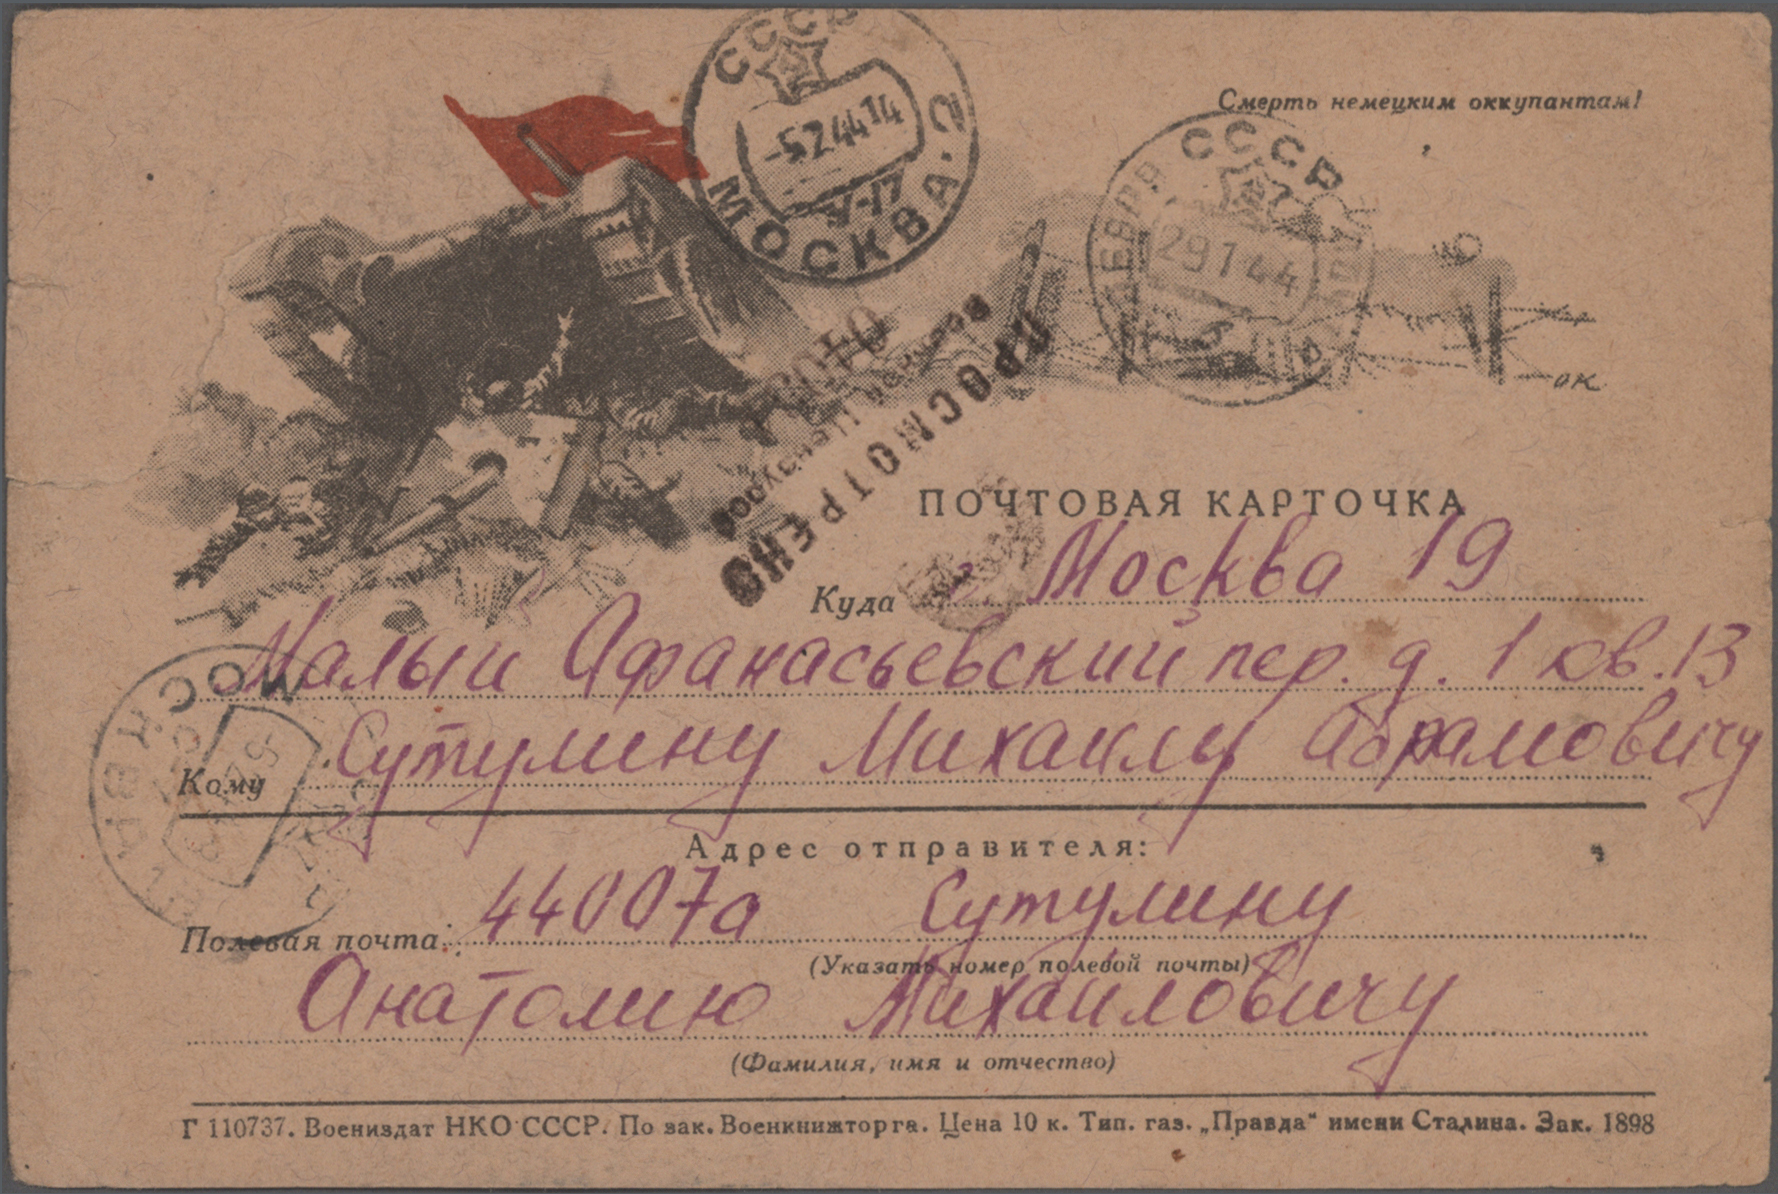 Смерть немецким оккупантам!
СССР
МОСКВА·2
-5244 14
V-17
СССР
29 1 44
ПРОСМОТРЕНО
Военной Цензурой
ОК
ПОЧТОВАЯ КАРТОЧКА
Куда г. Москва 19
Малый Афанасьевский пер. д. 1 кв. 13
Кому Сутулину Михаилу Абрамовичу
МОСКВА
Адрес отправителя:
Полевая почта: 44007а Сутулину
(Указать номер полевой почты)
Анатолию Михайловичу
(Фамилия, имя и отчество)
Г 110737. Воениздат НКО СССР. По зак. Военкнижторга. Цена 10 к. Тип. газ. „Правда“ имени Сталина. Зак. 1898